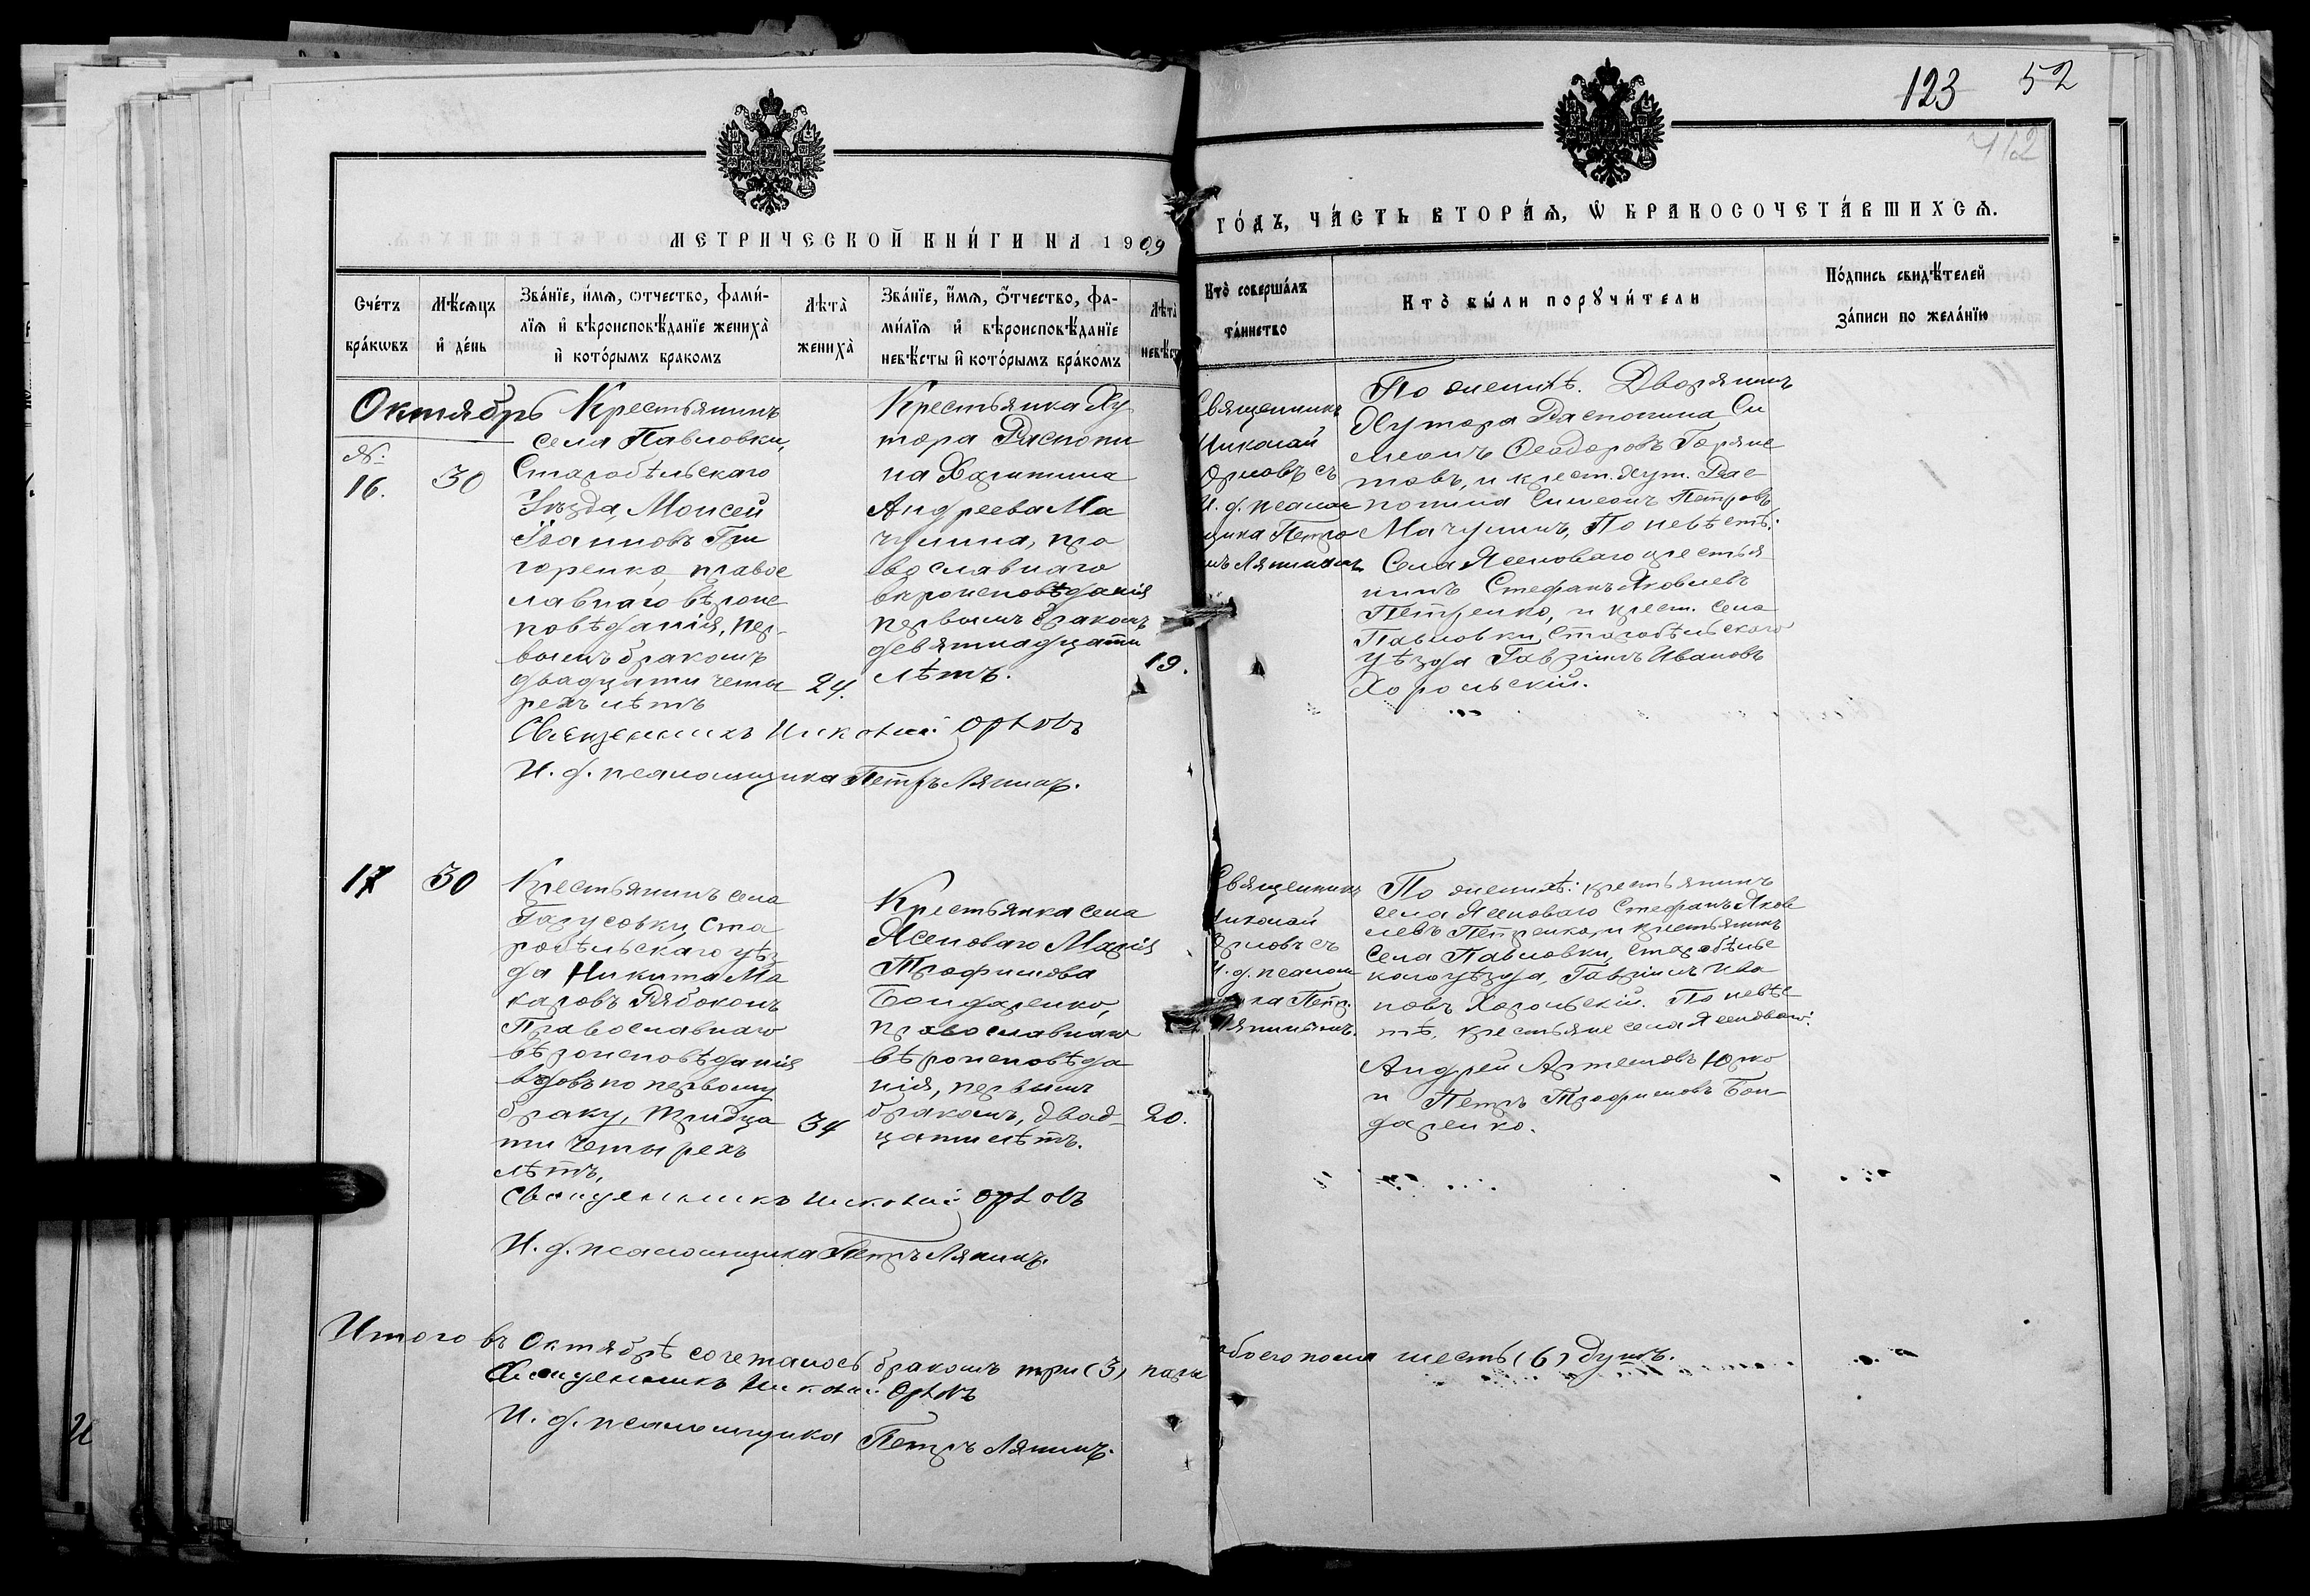 123 52
412
МЕТРИЧЕСКОЙ КНИ́ГИ НА 1909
ГО́ДЪ, ЧА́СТЬ ВТОРА́Ѧ, Ѡ БРАКОСОЧЕТА́ВШИХСѦ.
Сче́тъ бра́кѡвъ
Мѣ́сѧцъ и де́нь
Зва́нїе, и́мѧ, ѻ́тчество, фами́-
лїѧ и вѣроисповѣ́данїе жениха̀
и кото́рымъ бракомъ
Лѣта̀ жениха̀
Зва́нїе, и́мѧ, ѻ́тчество, фа-
ми́лїѧ и вѣроисповѣ́данїе
невѣ́сты и кото́рымъ бра́комъ
Лѣта̀
невѣ́с
Кто̀ соверша́лъ
та́инство
Кто̀ бы́ли порꙋчи́тели
По́дпись свидѣ́телей
за́писи по жела́нїю
Октябрь
№:
16.
30
Крестьянинъ
села Павловки,
Старобѣльскаго
Уѣзда, Моисей
Іоанновъ Гри
горенко, правос
лавнаго вѣроис
повѣданія, пер-
вымъ бракомъ
двадцати четы
рехъ лѣтъ
24.
Крестьянка Ху
тора Распопи
на Харитина
Андреева Ма
чулина, пра
вославнаго
вѣроисповѣданія
первымъ бракомъ
девятнадцати
лѣтъ.
19.
Священникъ
Николай
Орловъ съ
И. д. псалом
щика Петро
мъ Ляпинымъ
По женихѣ. Дворянинъ
Хутора Распопина Си
меонъ Ѳеодоровъ Горяис
товъ, и крест. хут. Рас
попина Симеонъ Петровъ
Мачулинъ, По невѣстѣ:
Села Ясеноваго крестья
нинъ Стефанъ Яковлевъ
Петренко, и крест. села
Павловки, Старобѣльскаго
уѣзда Гавріилъ Ивановъ
Хорольскій.
Священникъ Николай Орловъ
И. д. псаломщика Петръ Ляпинъ.
17
30
Крестьянинъ села
Гарусовки, Ста
робѣльскаго уѣз
да Никита Ма
каровъ Рябоконь
Православнаго
вѣроисповѣданія
вдовъ по первому
браку, тридца
ти четырехъ
лѣтъ,
34
Крестьянка села
Ясеноваго Марія
Трофимова
Бондаренко,
православнаго
вѣроисповѣда
нія, первымъ
бракомъ, двад-
цати лѣтъ.
20.
Священникъ
Николай
Орловъ съ
И. д. псалом
щика Петр.
Ляпинымъ.
По женихѣ: крестьянинъ
села Ясеноваго Стефанъ Яков
левъ Петренко, и крестьянинъ
села Павловки, Старобѣльс
каго уѣзда, Гавріилъ Ива
новъ Хорольскій. По невѣс
тѣ, крестьяне села Ясеноваго:
Андрей Артемовъ Юрко
и Петръ Трофимовъ Бон-
даренко.
Священникъ Николай Орловъ
И. д. псаломщика Петръ Ляпинъ.
Итого въ Октябрѣ сочеталось бракомъ три (3) пары обоего пола шесть (6) душъ.
Священникъ Николай Орловъ
И. д. псаломщика Петръ Ляпинъ.